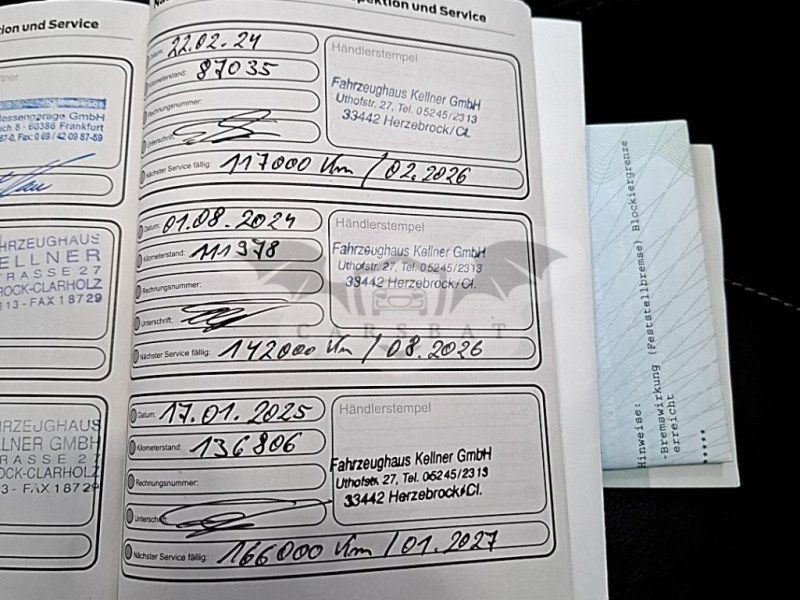 ion und Service
ektion und Service
Messengarage GmbH
60386 Frankfurt
Fax: 0 69 / 42 09 87-59
HRZEUGHAUS
ELLNER
TRASSE 27
ROCK-CLARHOLZ
313 - FAX 18729
HRZEUGHAUS
LLNER GMBH
TRASSE 27
OCK-CLARHOLZ
3 - FAX 18729
Datum: 22.02.24
Kilometerstand: 87035
Rechnungsnummer:
Unterschrift:
Nächster Service fällig: 117000 Km / 02.2026
Händlerstempel
Fahrzeughaus Kellner GmbH
Uthofstr. 27, Tel. 05245/2313
33442 Herzebrock/Cl.
Datum: 01.08.2024
Kilometerstand: 111978
Rechnungsnummer:
Unterschrift:
Nächster Service fällig: 142000 Km / 08.2026
Händlerstempel
Fahrzeughaus Kellner GmbH
Uthofstr. 27, Tel. 05245/2313
33442 Herzebrock/Cl.
CARSBAT
Datum: 17.01.2025
Kilometerstand: 136806
Rechnungsnummer:
Unterschrift
Nächster Service fällig: 166000 Km / 01.2027
Händlerstempel
Fahrzeughaus Kellner GmbH
Uthofstr. 27, Tel. 05245/2313
33442 Herzebrock/Cl.
Hinweise:
-Bremswirkung (Feststellbremse) Blockiergrenze
erreicht
*****